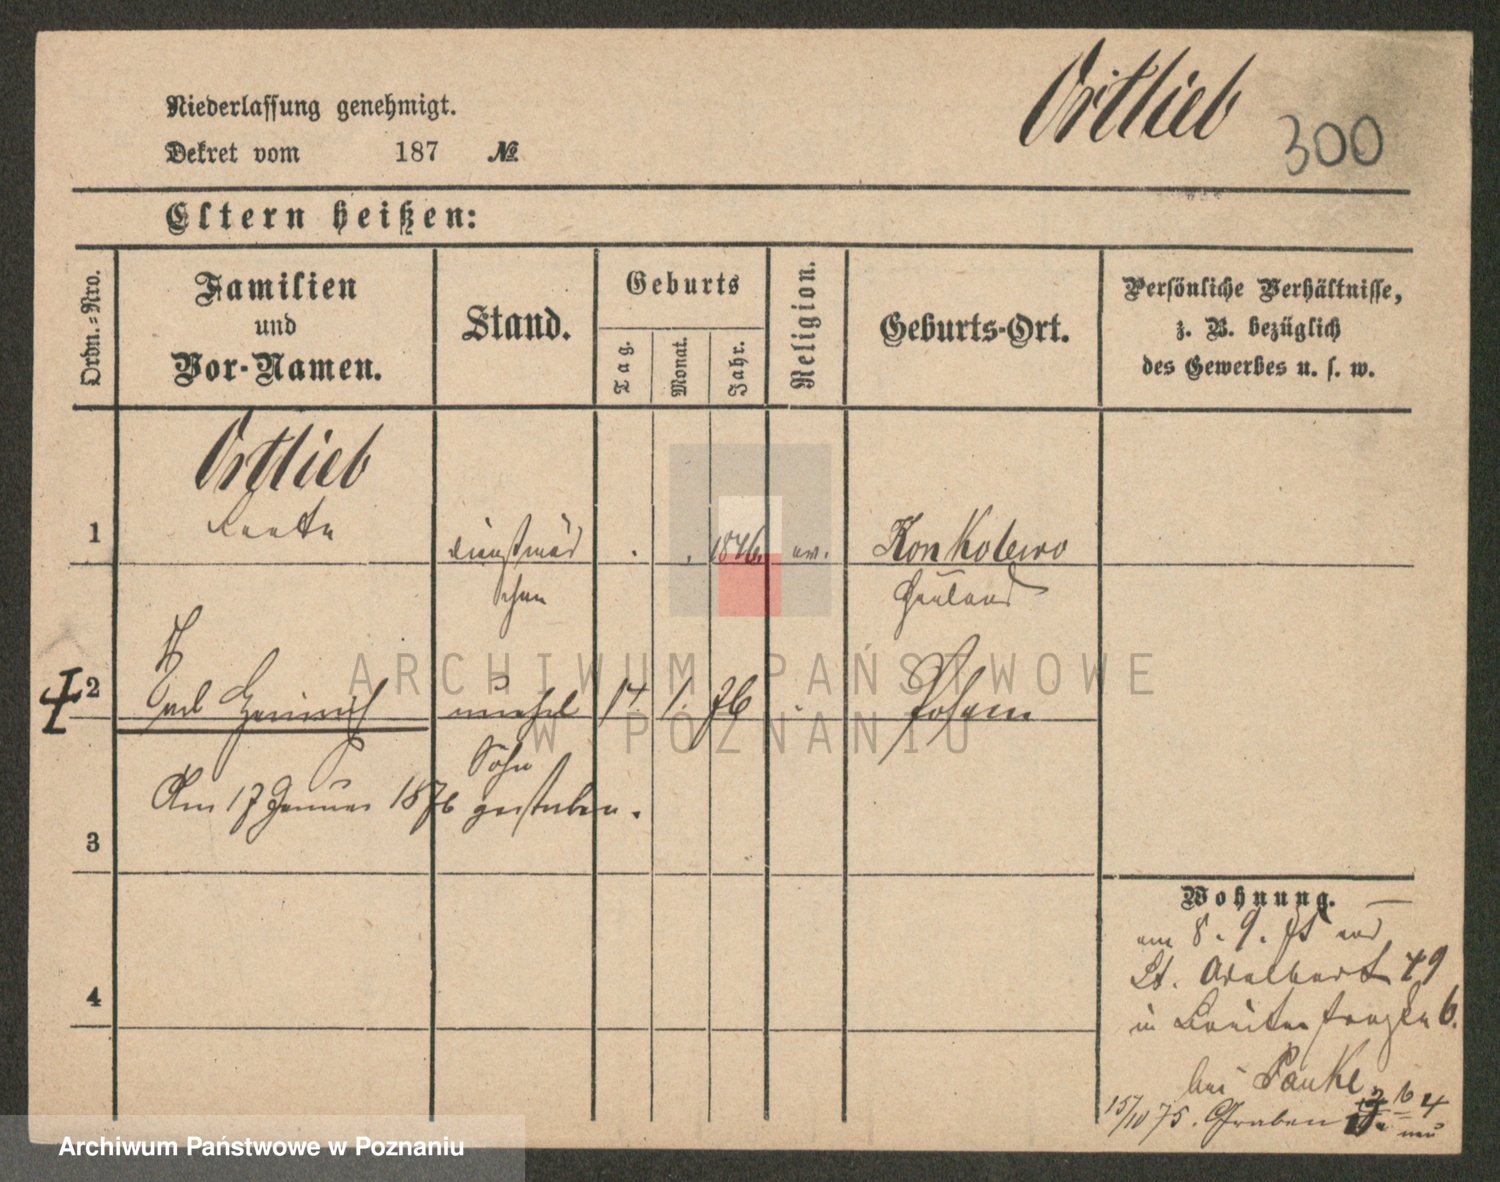 Ortlieb
300
Niederlassung genehmigt.
Dekret vom 187 №
Eltern heißen:
Ordn.=Nro.
Familien
und
Vor-Namen.
Stand.
Geburts
Tag.
Monat.
Jahr.
Religion.
Geburts-Ort.
Persönliche Verhältnisse,
z. B. bezüglich
des Gewerbes u. s. w.
Ortlieb
1 dienstmäd 1846. ev. Konkolewo
chen Hauland
2 Carl Heinrich unehel 14 1. 76 Posen
Sohn
Am 17 Januar 1876 gestorben.
3
4
Wohnung.
am 8. 9. 75 von
St. Adalbert 49
in Breitestraße 6.
bei Pauke
15/10 75. Graben
ARCHIWUM PAŃSTWOWE
W POZNANIU
Archiwum Państwowe w Poznaniu